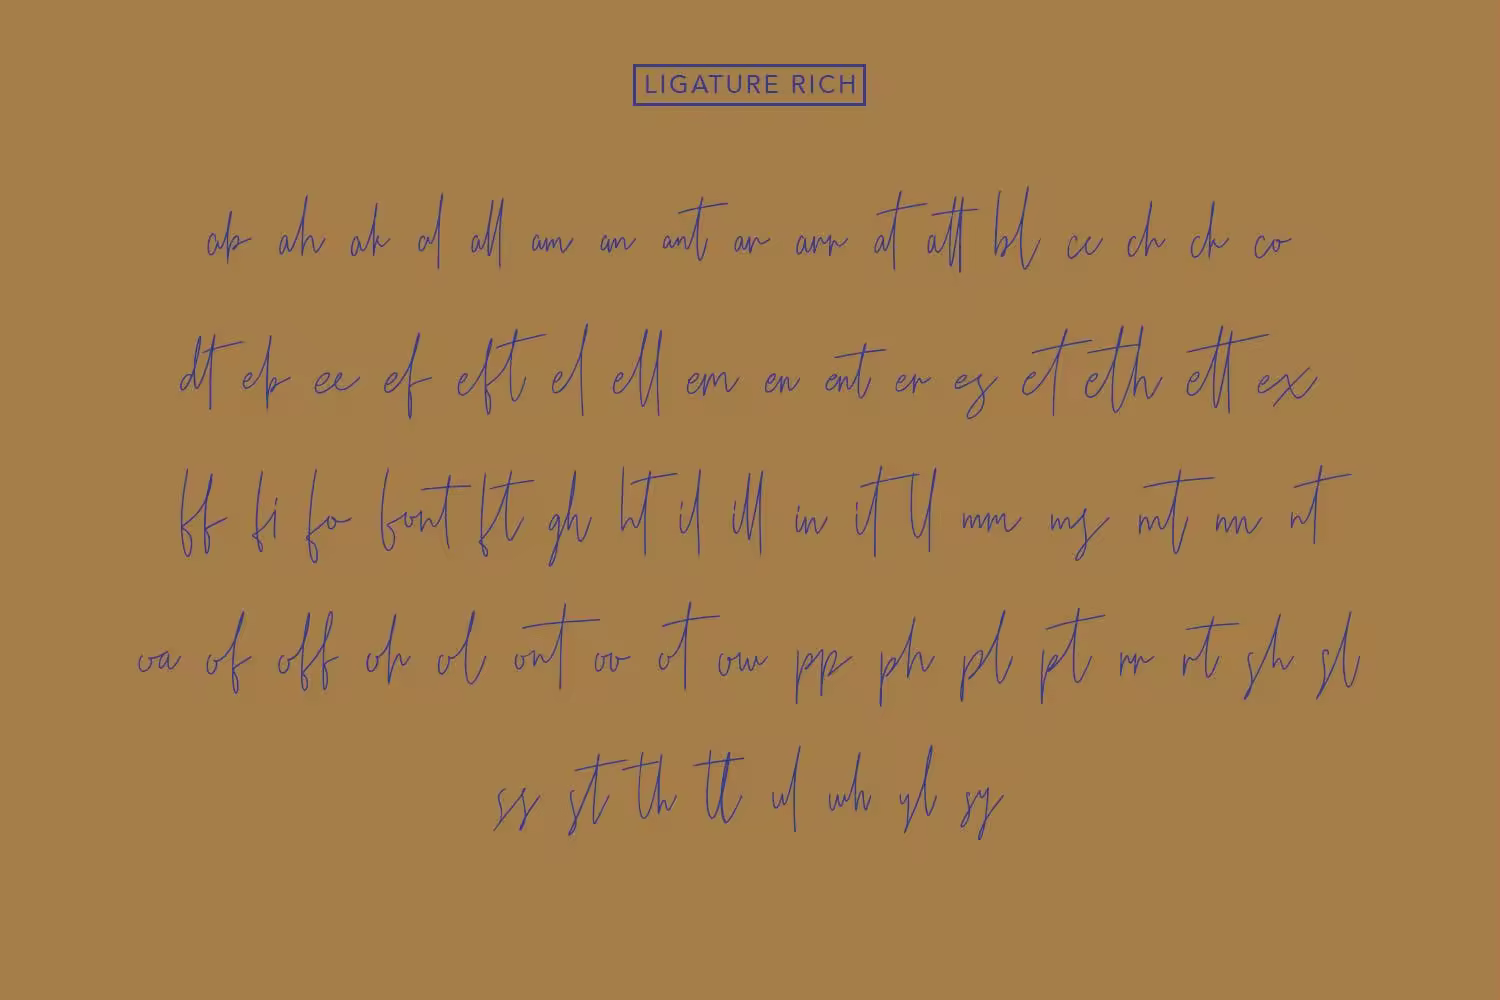 LIGATURE RICH
ab ah ak al all am an ant ar arr at att bl cc ch ck co
dt eb ee ef eft el ell em en ent er es et eth ett ex
ff fi fo font ft gh ht il ill in it ll mm ms mt nn nt
oa of off oh ol ont oo ot ow pp ph pl pt rr rt sh sl
ss st th tt ul wh yl sy